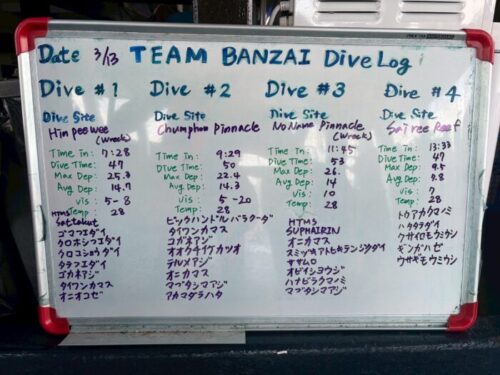 Date 3/13 TEAM BANZAI Dive Log
Dive #1
Dive Site
Hin pee wee
(Wreck)
Time in: 7:28
Dive Time: 47
Max Dep: 25.3
Avg Dep: 14.7
Vis: 5-8
Temp: 28
HTMS
Sattakut
ゴマフエダイ
クロホシフエダイ
クロコショウダイ
タテフエダイ
ゴカネアジ
タイワンカマス
オニオコゼ
Dive #2
Dive Site
Chumphon Pinnacle
Time In: 9:29
Dive Time: 50
Max Dep: 22.4
Avg Dep: 14.3
Vis: 5-20
Temp: 28
ビックハンドルバラクーダ
タイワンカマス
コガネアジ
オオクチイケカツオ
テルメアジ
オニカマス
マブタシマアジ
アカマダラハタ
Dive #3
Dive Site
No Name Pinnacle
(Wreck)
Time In: 11:45
Dive Time: 53
Max Dep: 26.
Avg Dep: 14
Vis: 10
Temp: 28
HTMS
SUPHAIRIN
オニカマス
スミツキアトヒキテンジクダイ
ササムロ
オビイシヨウジ
ハナビラクマノミ
マブタシマアジ
Dive #4
Dive Site
Sai ree Reef
Time In: 13:33
Dive Time: 47
Max Dep:
Avg Dep:
Vis: 7
Temp: 28
トウアカクマノミ
ハタタテダイ
クサイロモウミウシ
ギンガハゼ
ウサギモウミウシ